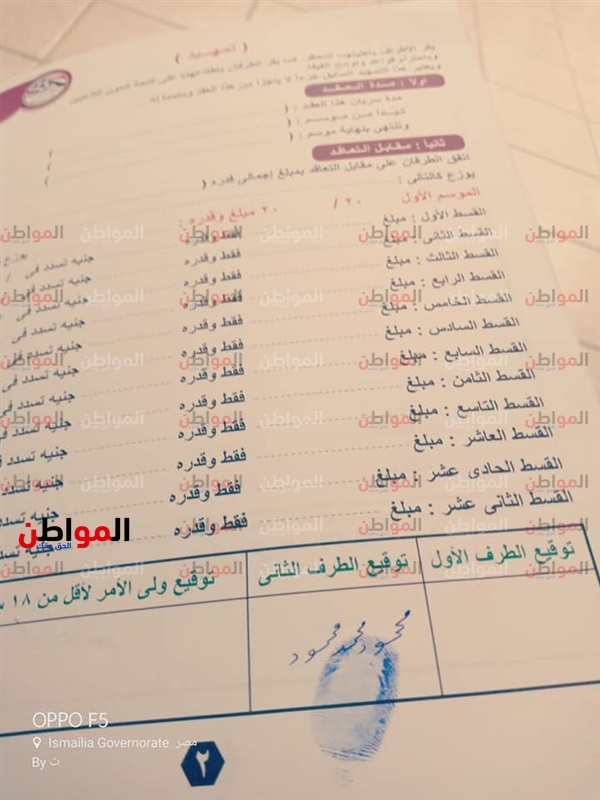 ( تمهيد )
يقر الأطراف بأهليتهما للتعاقد كما يقر الطرفان باطلاعهما على لائحة شئون اللاعبين
ويعتبر هذا التمهيد السابق جزءا لا يتجزأ من هذا العقد ومتمما له
أولا : مدة العقد
مدة سريان هذا العقد : (
تبدأ من موسم : ( /
وتنتهى بنهاية موسم : ( /
ثانيا : مقابل التعاقد
اتفق الطرفان على مقابل التعاقد بمبلغ إجمالى قدره (
يوزع كالتالى :
الموسم الأول ٢٠ / ٢٠ مبلغ وقدره :
القسط الأول : مبلغ فقط وقدره
القسط الثانى : مبلغ فقط وقدره جنيه تسدد فى /
القسط الثالث : مبلغ فقط وقدره جنيه تسدد فى
القسط الرابع : مبلغ فقط وقدره جنيه تسدد فى
القسط الخامس : مبلغ فقط وقدره جنيه تسدد فى
القسط السادس : مبلغ فقط وقدره جنيه تسدد فى
القسط السابع : مبلغ فقط وقدره جنيه تسدد فى
القسط الثامن : مبلغ فقط وقدره جنيه تسدد فى
القسط التاسع : مبلغ فقط وقدره جنيه تسدد فى
القسط العاشر : مبلغ فقط وقدره جنيه تسدد
القسط الحادى عشر : مبلغ فقط وقدره جنيه تسدد
القسط الثانى عشر : مبلغ فقط وقدره جنيه تسدد
المواطن
توقيع الطرف الأول توقيع الطرف الثانى توقيع ولى الأمر لأقل من ١٨
محمود محمد محمود
OPPO F5
Ismailia Governorate مصر
By ت
٢